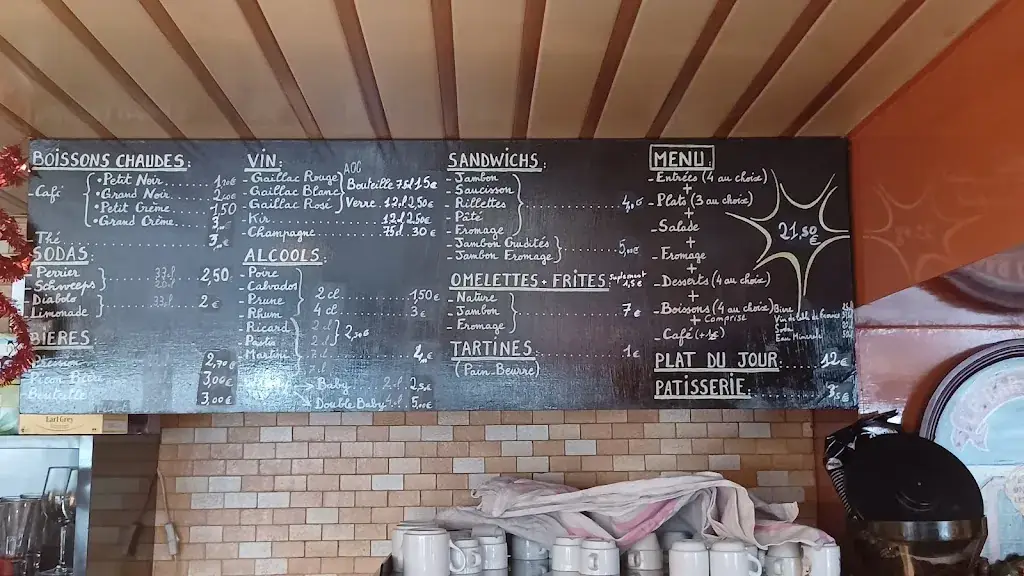 BOISSONS CHAUDES:
- Café
• Petit Noir
• Grand Noir
• Petit Crème 1,50
• Grand Crème
- Thé
SODAS:
- Perrier 33cl
- Schweeps 2,50
- Diabolo 33cl
- Limonade 2€
BIÈRES
2,70€
3,00€
Bouteille 3,00€
VIN: AOC
- Gaillac Rouge
- Gaillac Blanc Bouteille 75cl 15€
- Gaillac Rosé Verre 12cl 2,50€
- Kir 12cl 2,50€
- Champagne 75cl 30€
ALCOOLS:
- Poire
- Calvados
- Prune 2cl 1,50€
- Rhum 4cl 3€
- Ricard
- Pastis
- Martini
Baby 2cl
Double Baby 4cl 5,00€
SANDWICHS:
- Jambon
- Saucisson
- Rillettes
- Pâté
- Fromage
- Jambon Crudités
- Jambon Fromage
OMELETTES + FRITES: Suplement 1,5€
- Nature
- Jambon 7€
- Fromage
TARTINES 1€
(Pain.Beurre)
MENU:
- Entrées (4 au choix)
+
- Plats (3 au choix)
+
- Salade
+
- Fromage
+
- Desserts (4 au choix)
+
- Boissons (4 au choix)
+ Comprise
- Café (+1€)
21,50€
Bière
Eau Minérale
PLAT DU JOUR 12€
PATISSERIE
Earl Grey